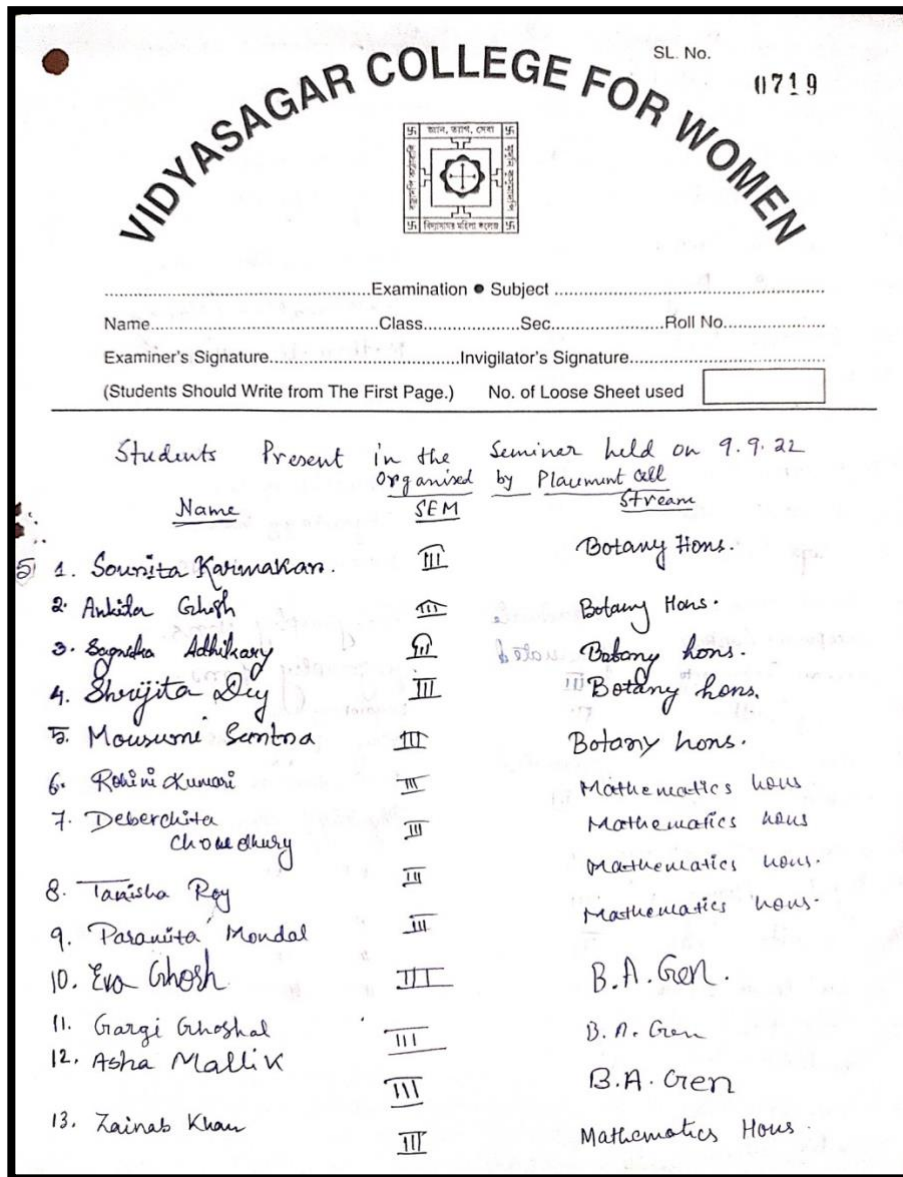 SL. No.
0719
VIDYASAGAR COLLEGE FOR WOMEN
জ্ঞান, ত্যাগ, সেবা
বিদ্যাসাগর মহিলা কলেজ
Examination ● Subject
Name Class Sec. Roll No.
Examiner's Signature Invigilator's Signature
(Students Should Write from The First Page.) No. of Loose Sheet used
Students Present in the Seminer held on 9.9.22
Organised by Placement Cell
Name SEM Stream
1. Sounita Karmakar. III Botany Hons.
2. Ankita Ghosh III Botany Hons.
3. Adhikary III Botany hons.
4. Shrijita Dey III Botany hons.
5. Mousumi Santra III Botany hons.
6. Rohini Kumari III Mathematics hons
7. Deberchita III Mathematics hons
Chowdhury
8. Tanisha Roy III Mathematics hons.
9. Paramita Mondal III Mathematics hons.
10. Eva Ghosh III B.A. Gen.
11. Gargi Ghoshal III B.A. Gen
12. Asha Mallik III B.A. Gen
13. Zainab Khan III Mathematics Hons.